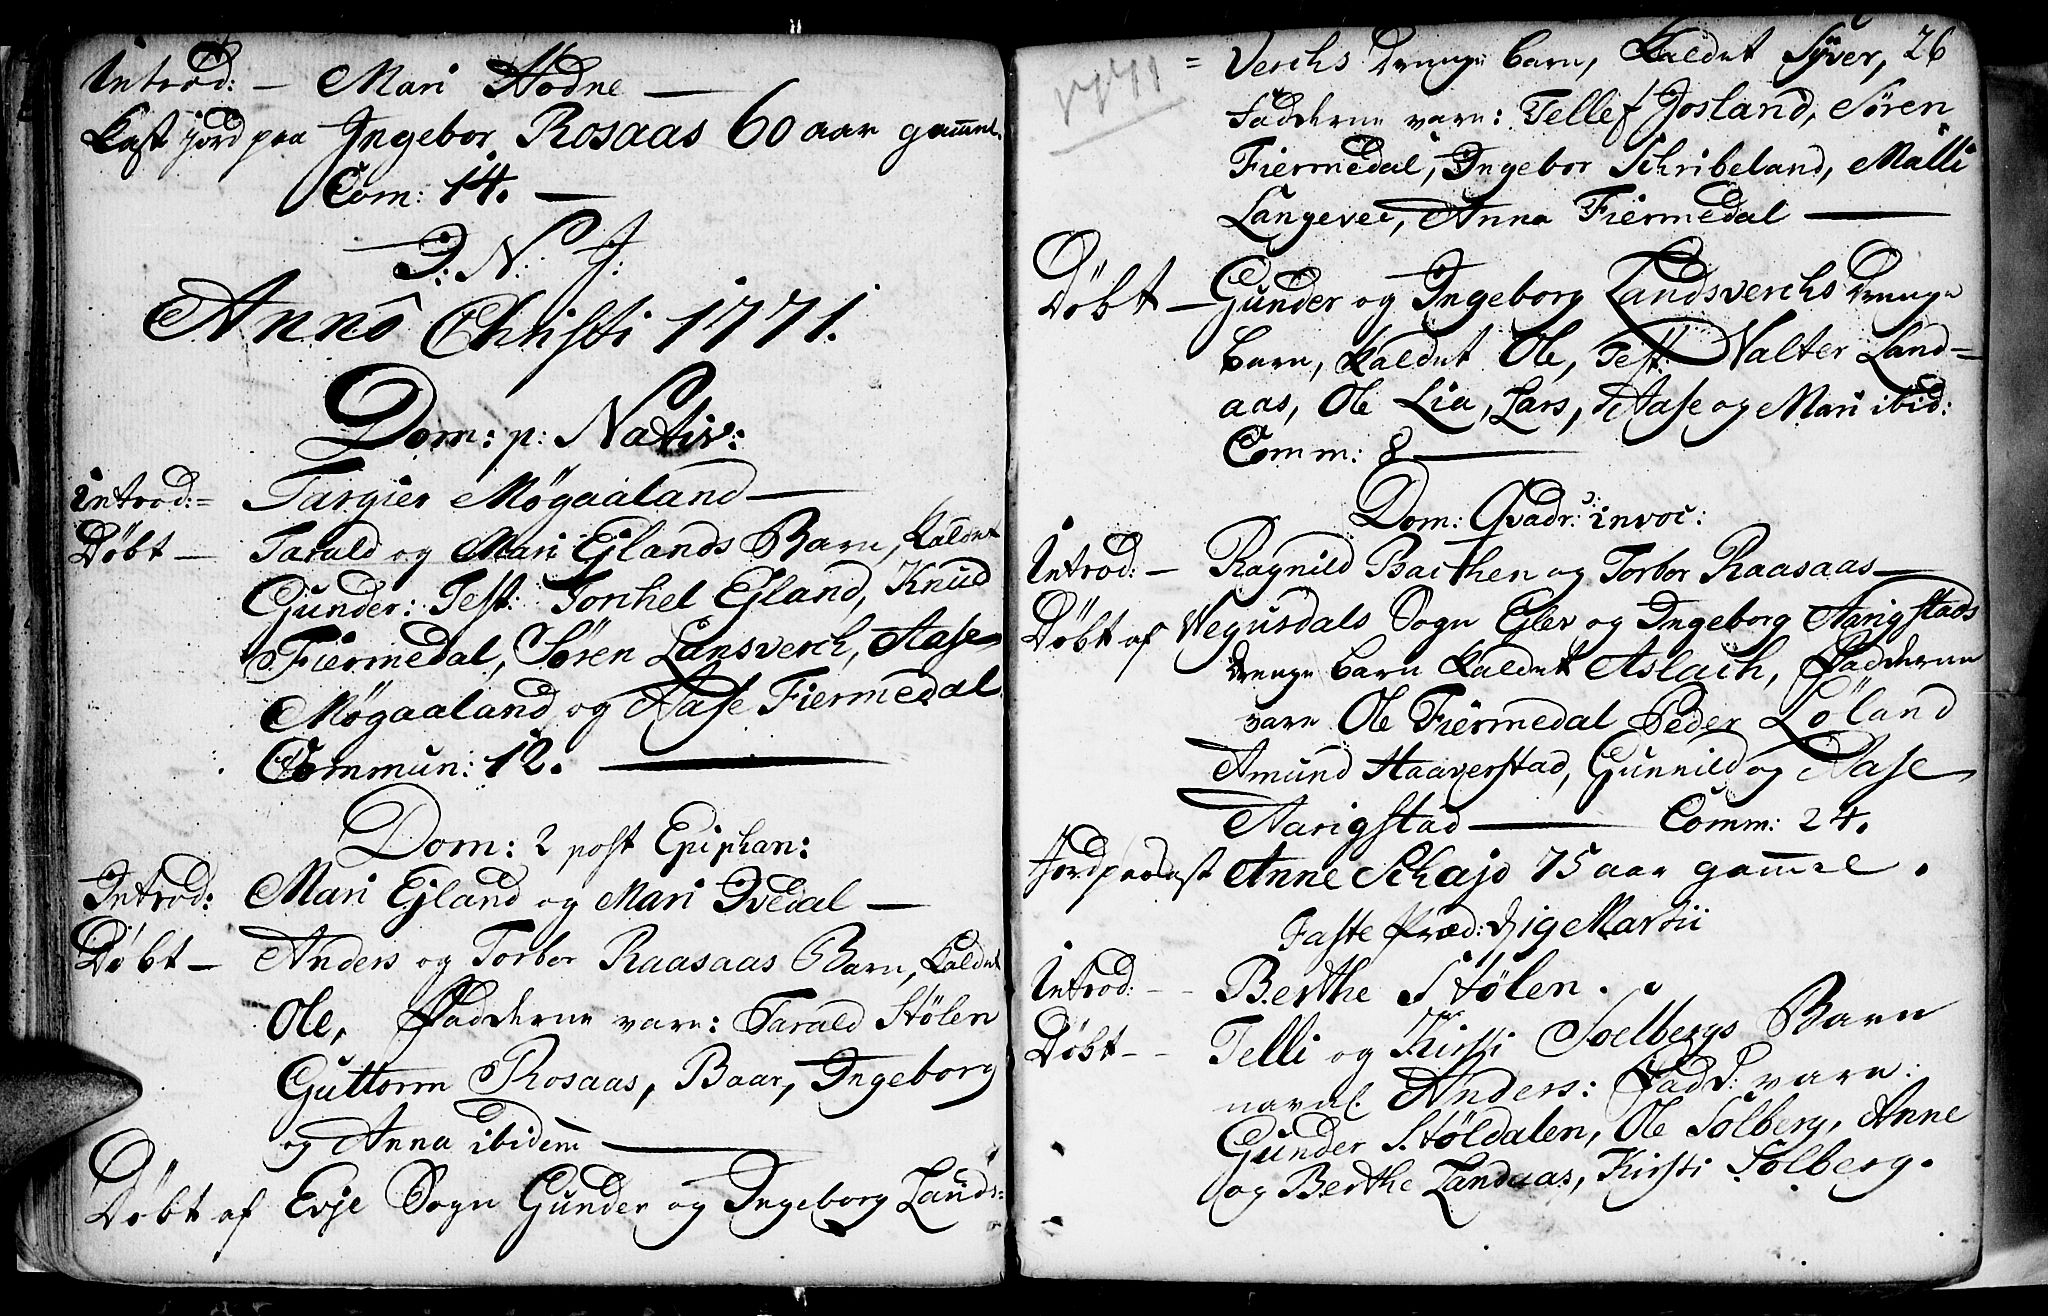 Introd: — Mari Hodne —
Kast jord paa Ingebor Rosaas 60 aar gammel.
Com: 14. —
D: N: J:
Annô Christi 1771.
Dom: p: Nativ:
Introd: = Targier Møgaaland —
Døbt — Tarald og Mari Ejlands Barn, kaldet
Gunder: Test: Torchel Ejland, Knud
Fiermedal, Søren Lansverch, Aase
Møgaaland og Aase Fiermedal
Commun: 12. —
Dom: 2 post Epiphan:
Introd: Mari Ejland og Mari Qvedal —
Døbt — Anders og Torbor Raasaas Barn, kaldet
Ole, Fadderne vare: Tarald Stølen
Guttorm Rosaas, Baar, Ingeborg
og Anna ibidem —
Døbt af Evje Sogn Gunder og Ingeborg Lands=
1771
= Verchs Drenge barn, kaldet Syver, 26
Fadderne vare: Tellef Josland, Sören
Fiermedal, Ingebor Schribeland, Målli
Langevei, Anna Fiermedal —
Døbt — Gunder og Ingeborg Landsverchs Drenge
barn, kaldet Ole, Test: Valter Land=
aas, Ole Lia, Lars, Aase og Mari ibid:
Comm: 8 —
Dom: Qvadr: invoc:
Introd: — Ragnild Bachen og Torbor Raasaas —
Døbt af Vegusdals Sogn Ejlev og Ingeborg Aarigstads
Drenge barn kaldet Aslach, Fadderne
vare Ole Fiermedal Peder Löland
Amund Haaverstad, Gunnild og Aase
Aarigstad — Comm: 24.
Jord paakast Anne Schajo 75 aar gammel.
Faste Præd: d. 19 Martii
Introd: - - Berthe Stølen.
Døbt - - Telli og Kirsti Soelbergs Barn
navnl. Anders: Fadd: vare:
Gunder Støldalen, Ole Solberg, Anne
og Berthe Landaas, Kirsti Solberg.